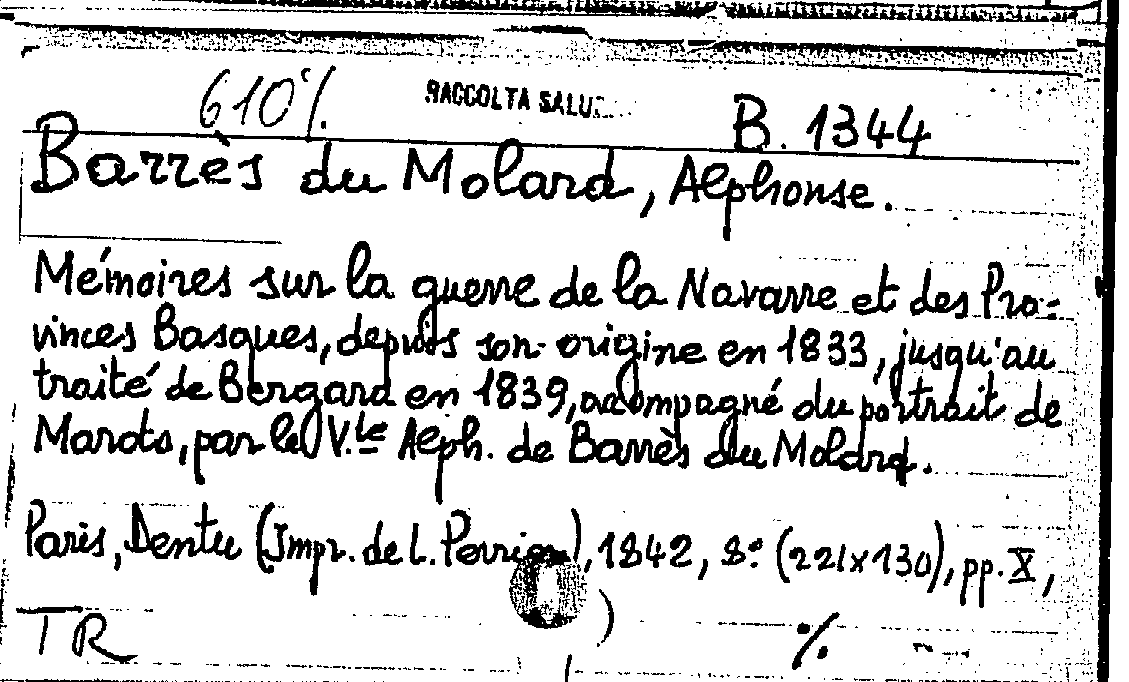 610 % RACCOLTA B. 1344
Barrès du Molard, Alphonse.
Mémoires sur la guerre de la Navarre et des Pro-
vinces Basques, depuis son origine en 1833, jusqu'au
traité de Bergara en 1839, accompagné du portrait de
Maroto, par le V.te Alph. de Barrès du Molard.
Paris, Dentu (Impr. de L. Perrier), 1842, 8° (221x130), pp. X,
TR ) %